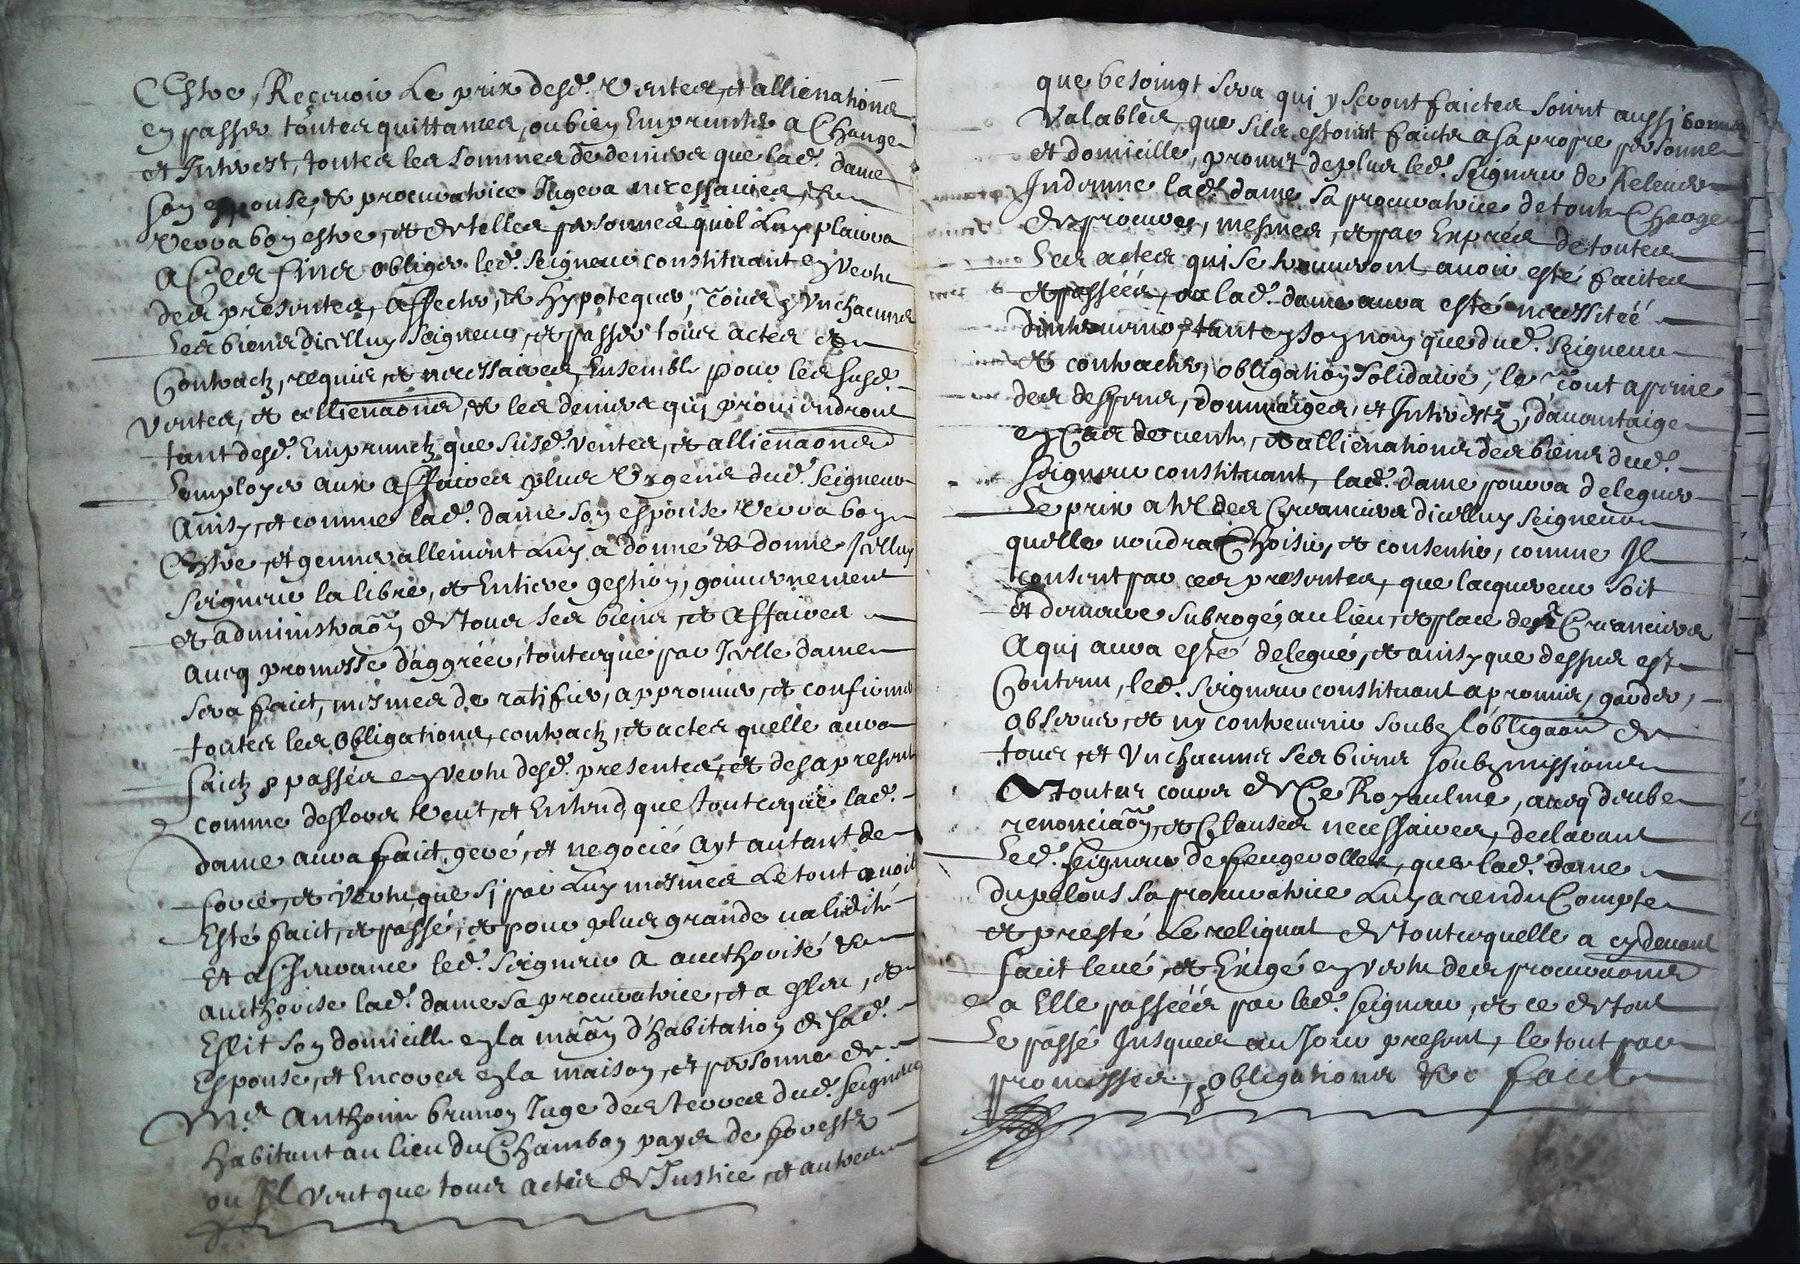 Estre, Recevoir Le prix desd. Ventes, et allienations
en passer toutes quittances, ou bien Emprunter a Change
et Interest, toutes les sommes de deniers que lad. dame
son espouse, & procuratrice Jugera necessaires, &
Verra bon estre, et de telles personnes quil Luy plairra
A Ces fins obliger led. seigneur constituant en Vertu
des presentes, affecter, & hypotequer, Tous & Vnchacuns
Les biens dicelluy seigneur, et passer tous actes et
Contractz, requis, et necessaires, Ensemble pour les susd.
Ventes, et allienaons, & les deniers qui proviendront
tant desd. Empruntz que susd. ventes, et allienaons
Employer aux affaires plus Vrgens dud. Seigneur
Ainsy, et comme lad. dame son espouse Verra bon
Estre, et generallement Luy a donné & donne Jcelluy
seigneur la libre, et Entiere gestion, gouvernement
et administraon de tous ses biens, et affaires
avecq promesse d'aggréer, tout ce que par Jcelle dame
sera faict, mesmes de ratifier, approuver, et confirmer
toutes les obligations, contractz, et actes quelle aura
faictz & passés en Vertu desd. presentes, et des a present
comme deslors Veut, et Entend, que tout ce que lad.
dame aura faict, geré, et negocié ayt autant de
force, et Vertu, que sj par Luy mesmes Le tout avoit
Esté faict, et passé, et pour plus grande validité
Et asseurance led. seigneur a aucthorisé &
aucthorise lad. dame sa procuratrice, et a esleu, et
Eslit son domicille en la maon d'habitation de sad.
Espouse, et Encores en la maison, et personne de
Mre Anthoine brunon Juge des terres dud. seigneur
habitant au lieu du Chambon pays de forestz
ou Jl Veut que tous actes de Justice, et autres
que besoingt sera qui y seront faictes soient aussi bonnes
Valables, que siles estoint faictes a sa propre personne
et domicille, promet de plus led. Seigneur de Relever
Indemne lad. dame sa procuratrice de toute Charge
de preuve, mesmes, et par Exprés de toutes
Les actes qui se trouveront avoir esté faictes
et passéés, ou lad. dame aura esté necessitéé
dintervenir, tant en son nom, que dud. Seigneur
et contracter obligation solidaire, le Tout a peine
des despens, dommaiges, et Interestz, d'avantaige
en Cas de vente, et allienations des biens dud.
seigneur constituant, lad. dame pourra deleguer
Le prix a tel des Creanciers dicelluy seigneur
quelle voudra Choisir, et consentir, comme Jl
consent par ces presentes, que lacquereur soit
et demeure subrogé, au lieu, et place des Creanciers
A qui aura esté delegué, et ainsy que dessus est
Contenu, led. seigneur constituant a promis, garder,
observer, et ny contrevenir soubz lobligaon de
tous, et Vnchacuns ses biens soubzmissions
A toutes cours de Ce Royaulme, avecq deube
renonciaon, et Clauses necessaires, declarant
Led. seigneur de feugerolles, que lad. dame
du pelous sa procuratrice Luy a rendu Compte
et presté Le reliquat de tout ce quelle a cy devant
faict levé, et Exigé en vertu des procuraons
a Elle passéés par led. seigneur, et ce de tout
Le passé Jusques au Jour present, le tout par
promesses, obligations &c faict